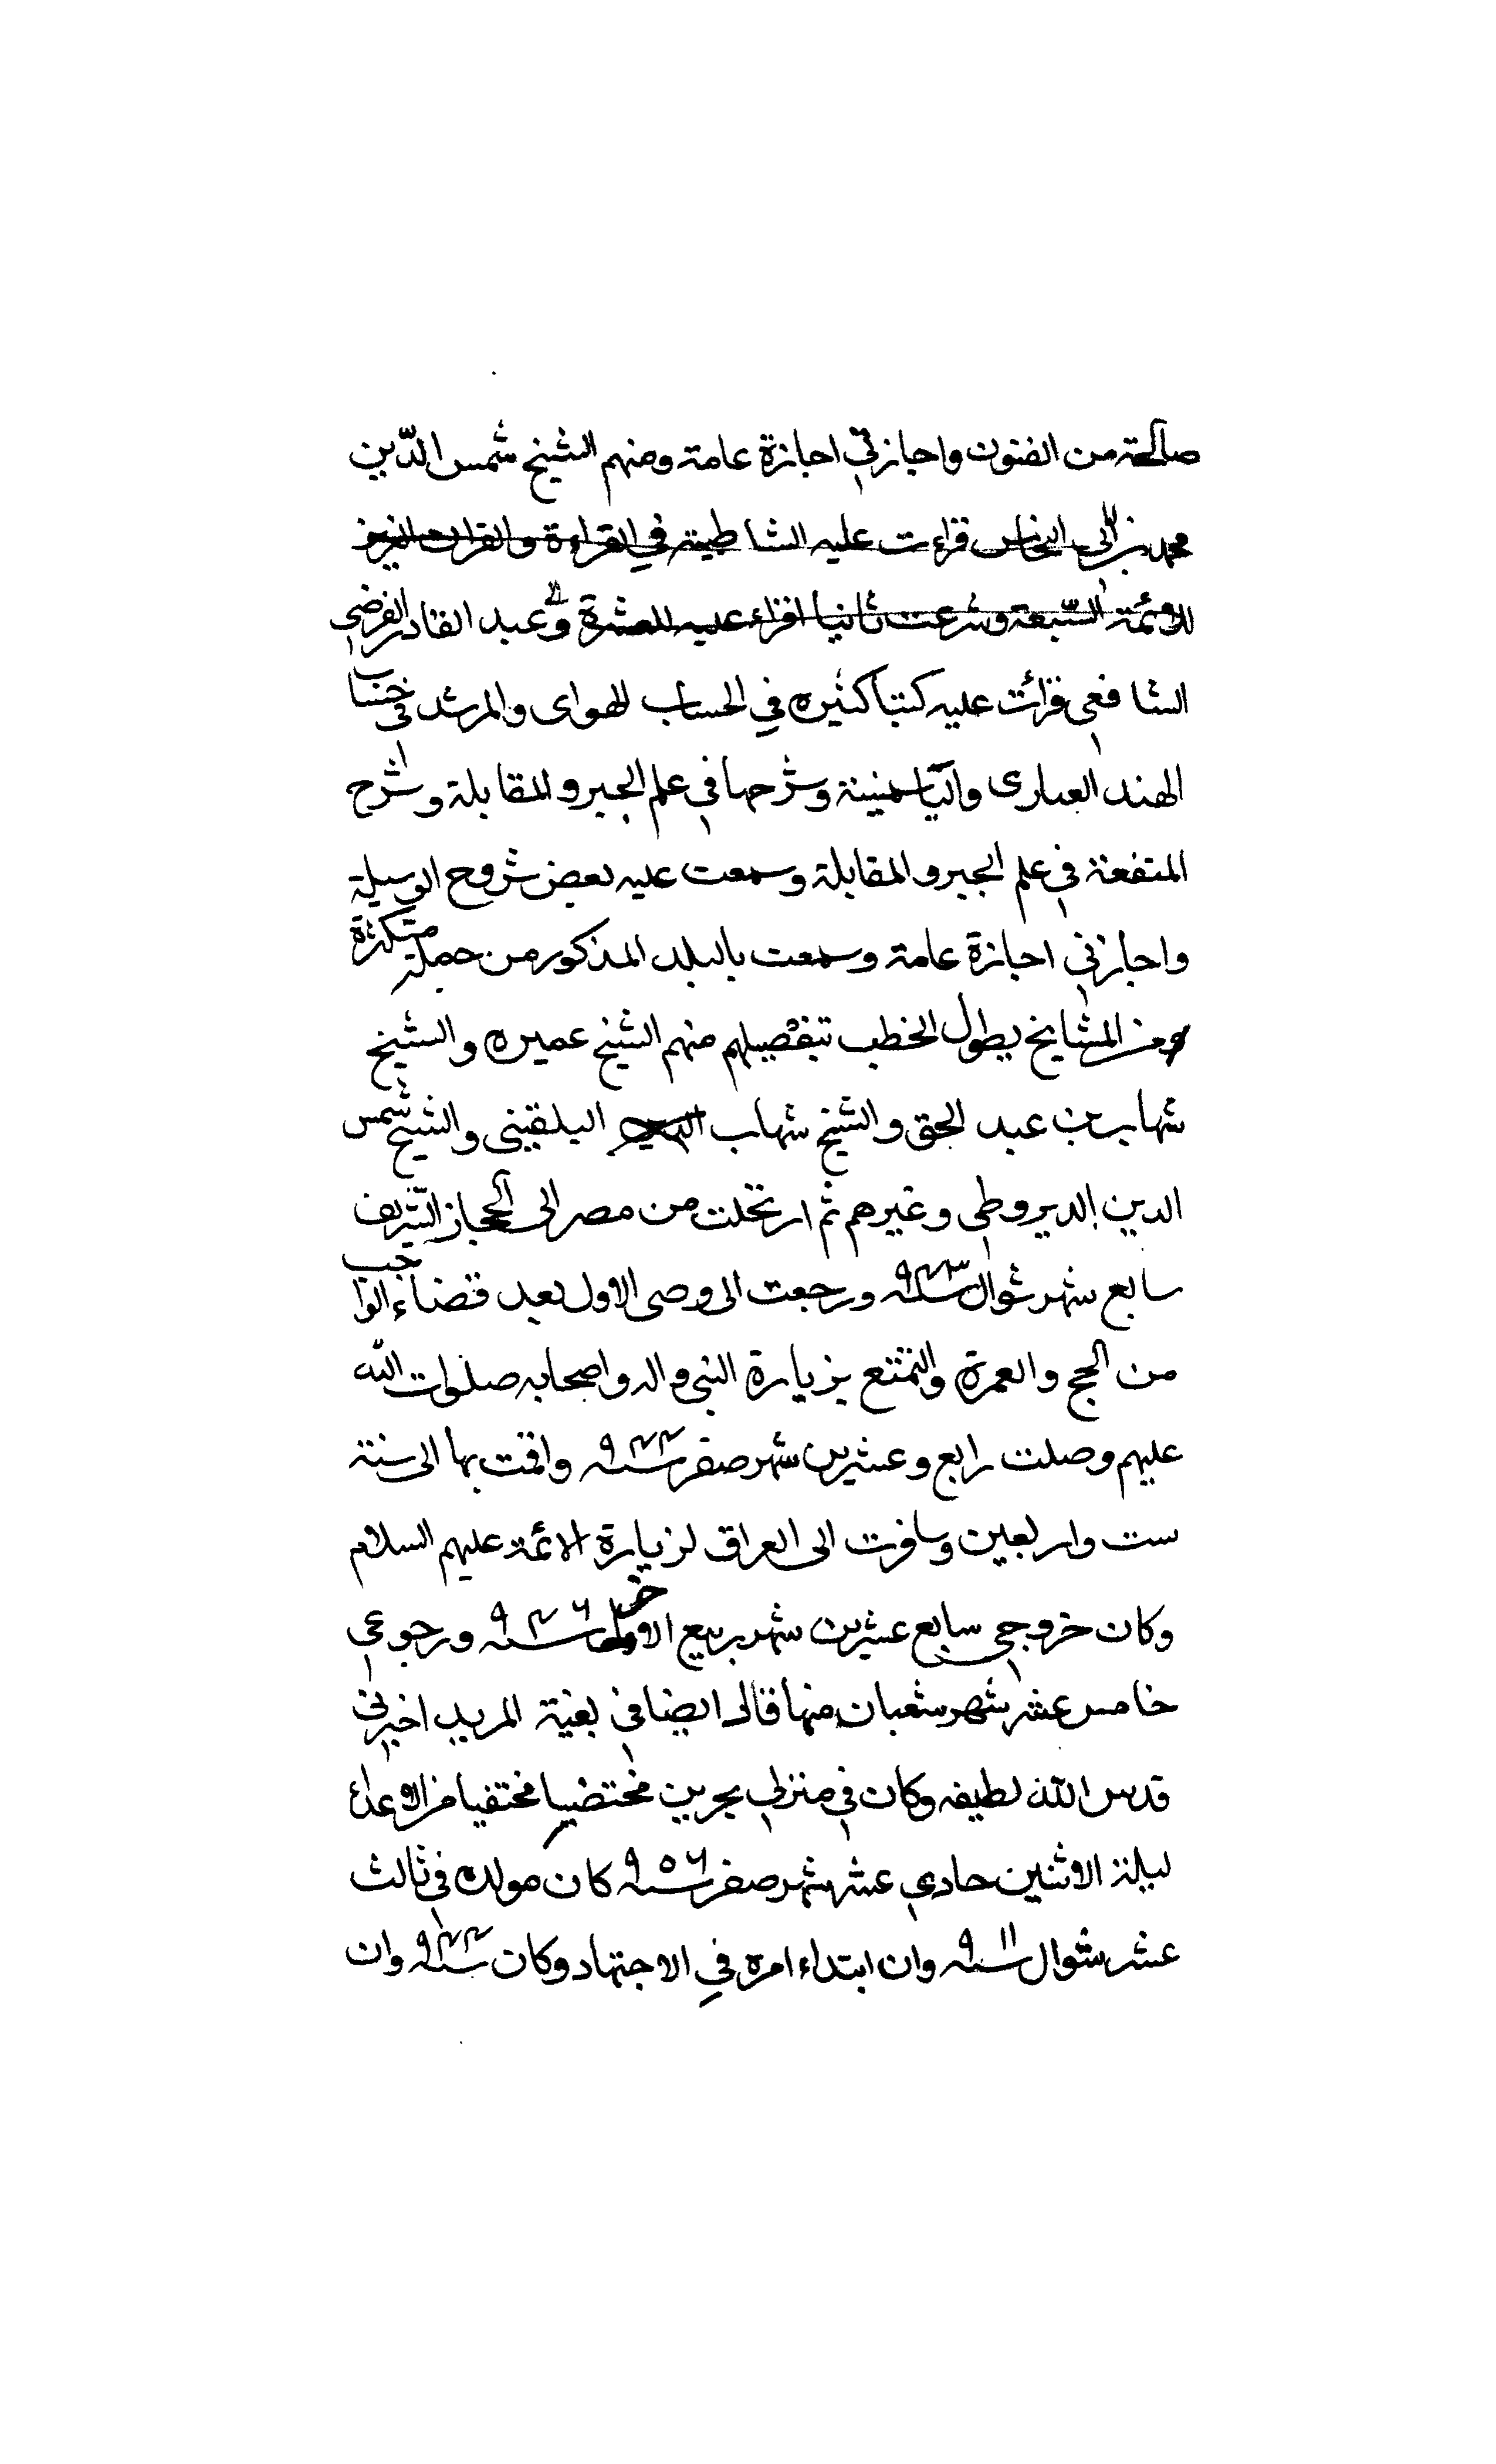 صالحة من الفنون واجازني اجازة عامة ومنهم الشيخ شمس الدّين
محمد بن ابي النحاس قراءت عليه الشاطبية في القراءة والقران العزيز
للائمة السّبعة وشرعت ثانيا اقراء عليه للعشرة وعبد القادر الفرضي
الشافعي قرائت عليه كتبا كثيره في الحساب الهواى والمرشد في حساب
الهند العبارى والياسمينية وشرحها في علم الجبر والمقابلة وشرح
المنفعة في علم الجبر والمقابلة وسمعت عليه بعض شروح الوسيلة
واجازني اجازة عامة وسمعت بالبلد المذكور من جملة متكثرة
من المشايخ يطول الخطب بتفصيلهم منهم الشيخ عميره والشيخ
شهاب بن عبد الحق والشيخ شهاب البلقيني والشيخ شمس
الدين الديروطي وغيرهم ثم ارتحلت من مصر الى الحجاز الشّريف
سابع شهر شوال سنة ٩٤٣ ورجعت الى وصى الاول بعد قضاء الواجب
من الحج والعمرة والتمتع بزيارة النبي واله واصحابه صلوات الله
عليهم وصلت رابع وعشرين شهر صفر سنة ٩٤٤ واقمت بها الى سنة
ست واربعين وسافرت الى العراق لزيارة الائمة عليهم السلام
وكان خروجي سابع عشرين شهر ربيع الاخر سنة ٩٤٦ ورجوعي
خامس عشر شهر شعبان منها قال ايضا في بغية المريد اخبرني
قدس الله لطيفه وكان في منزلي بجزين مختفيا من الاعداء
ليلة الاثنين حادي عشر شهر صفر سنة ٩٥٦ كان مولده في ثالث
عشر شوال سنة ٩١١ وان ابتداء امره في الاجتهاد وكان سنة ٩٤٤ وان